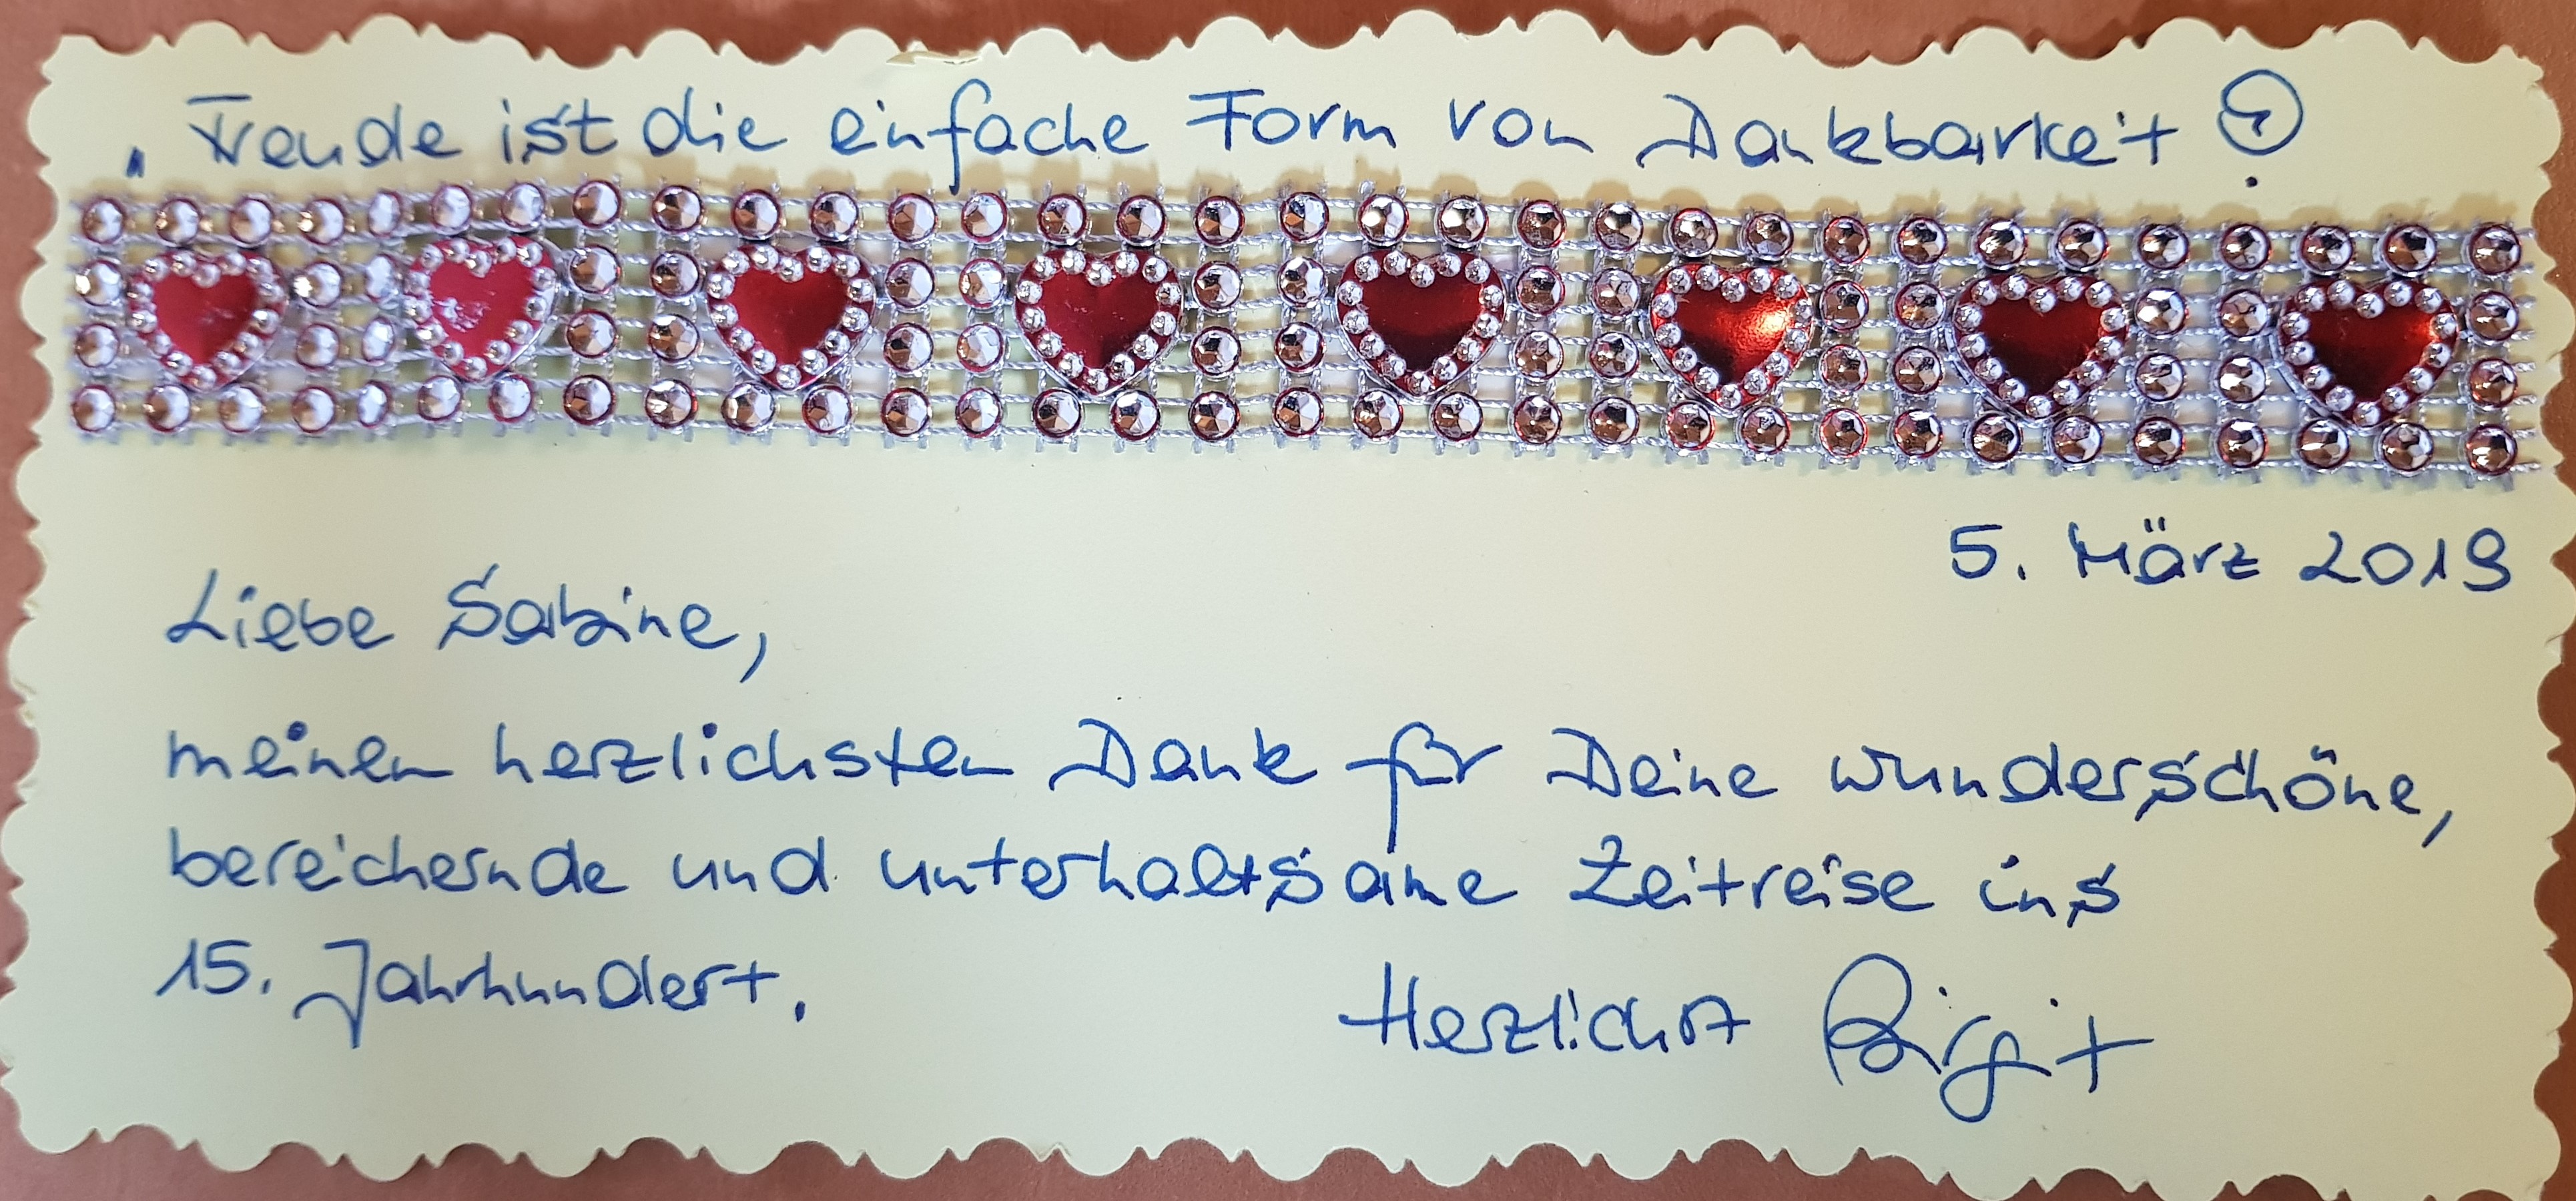 „Freude ist die einfache Form von Dankbarkeit
5. März 2019
Liebe Sabine,
meinen herzlichsten Dank für Deine wunderschöne,
bereichernde und unterhaltsame Zeitreise ins
15. Jahrhundert.
Herzlichst Birgit